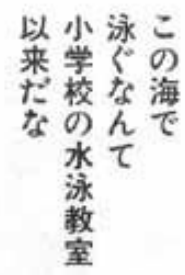 この海で
泳ぐなんて
小学校の水泳教室
以来だな